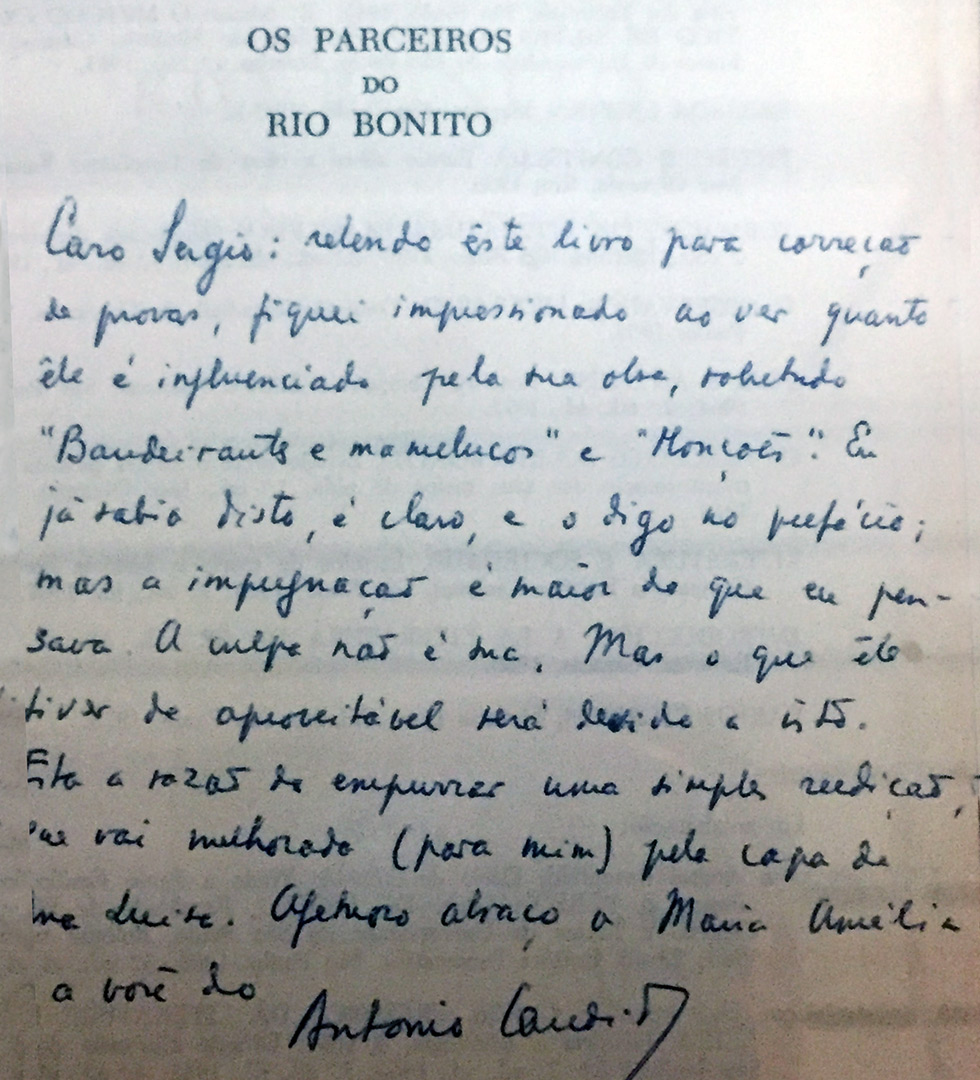 OS PARCEIROS
DO
RIO BONITO
Caro Sergio: relendo êste livro para correção
de provas, fiquei impressionado ao ver quanto
êle é influenciado pela sua obra, sobretudo
"Bandeirantes e mamelucos" e "Monções". Eu
já sabia disto, é claro, e o digo no prefácio;
mas a impregnação é maior do que eu pen-
sava. A culpa não é sua. Mas o que êle
tiver de aproveitável será devido a isto.
Esta a razão de empurrar uma simples reedição,
que vai melhorada (para mim) pela capa de
Ana Luisa. Afetuoso abraço a Maria Amélia
a você do
Antonio Candido